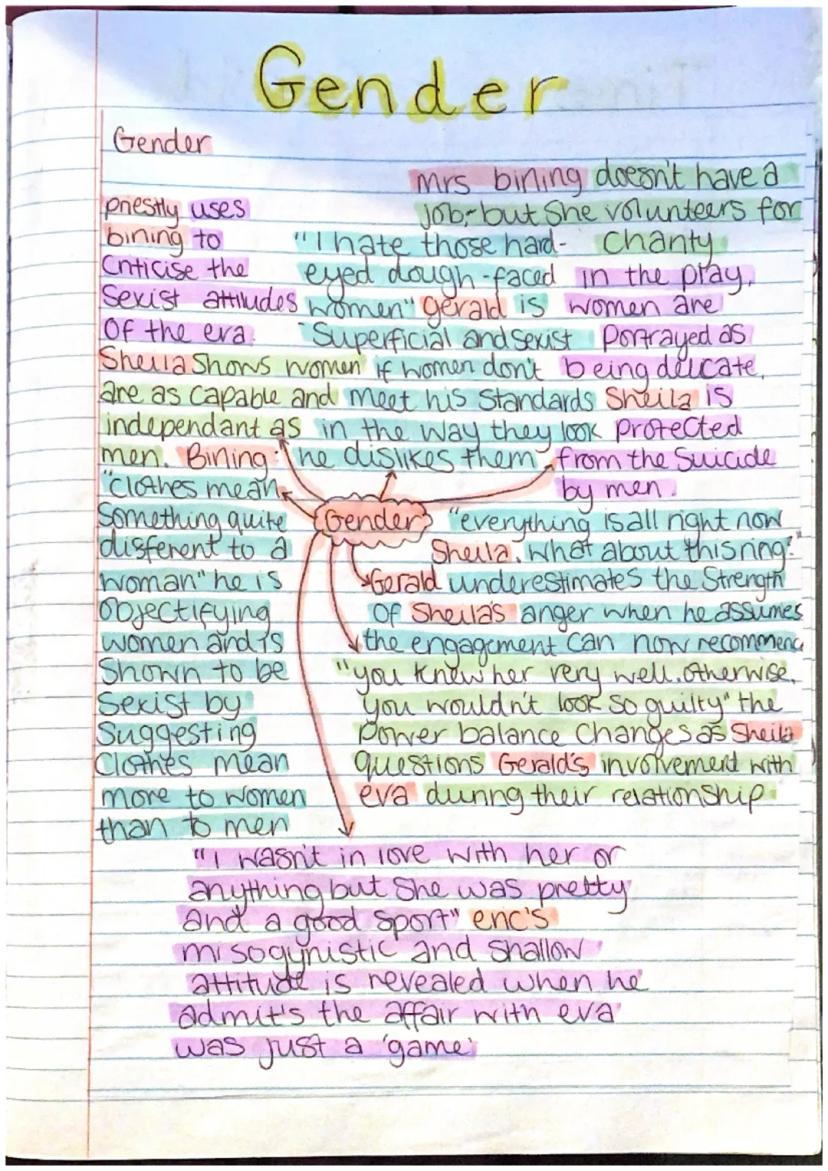 Gender
Gender
priestly uses
bining to
Criticise the
Sexist attitudes
Of the era.
Sheila Shows women
are as capable and
independant as
men. Bining:
"clothes mean
Something quite
different to a
woman" he is
Objectifying
women and is
Shown to be
Sexist by
Suggesting
Clothes mean
more to women
than to men
"I hate those hard-
eyed dough-faced
women" gerald is
Superficial and sexist
if women don't
meet his standards
in the way they look
he dislikes them
mrs bining doesn't have a
job, but she volunteers for
charity
in the play,
women are
portrayed as
being delicate.
Sheila is
protected
from the Suicide
by men.
Gender
"everything is all right now
Sheila. what about this ring?"
Gerald underestimates the Strength
Of Sheila's anger when he assumes
the engagement can now recommenc
"you knew her very well. otherwise,
you wouldn't look so guilty" the
Power balance Changes as Sheila
questions Gerald's involvement with
eva during their relationship
"I wasn't in love with her or
anything but She was pretty
and a good sport" eric's
misogynistic and shallow
attitude is revealed when he
admit's the affair with eva
was just a 'game'